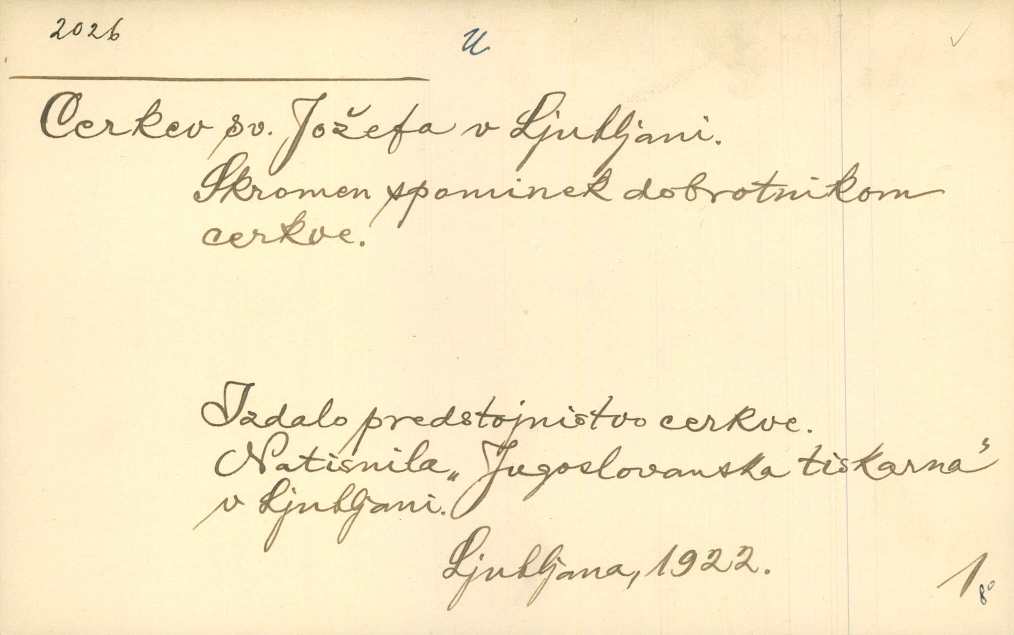 2026
U
Cerkev sv. Jožefa v Ljubljani.
Skromen spominek dobrotnikom
cerkve.
Izdalo predstojništvo cerkve.
Natisnila „Jugoslovanska tiskarna"
v Ljubljani.
Ljubljana, 1922.
1
8°